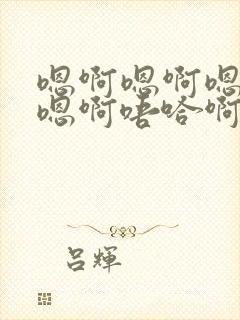 嗯啊嗯啊嗯
嗯啊唔哈啊
吕辉